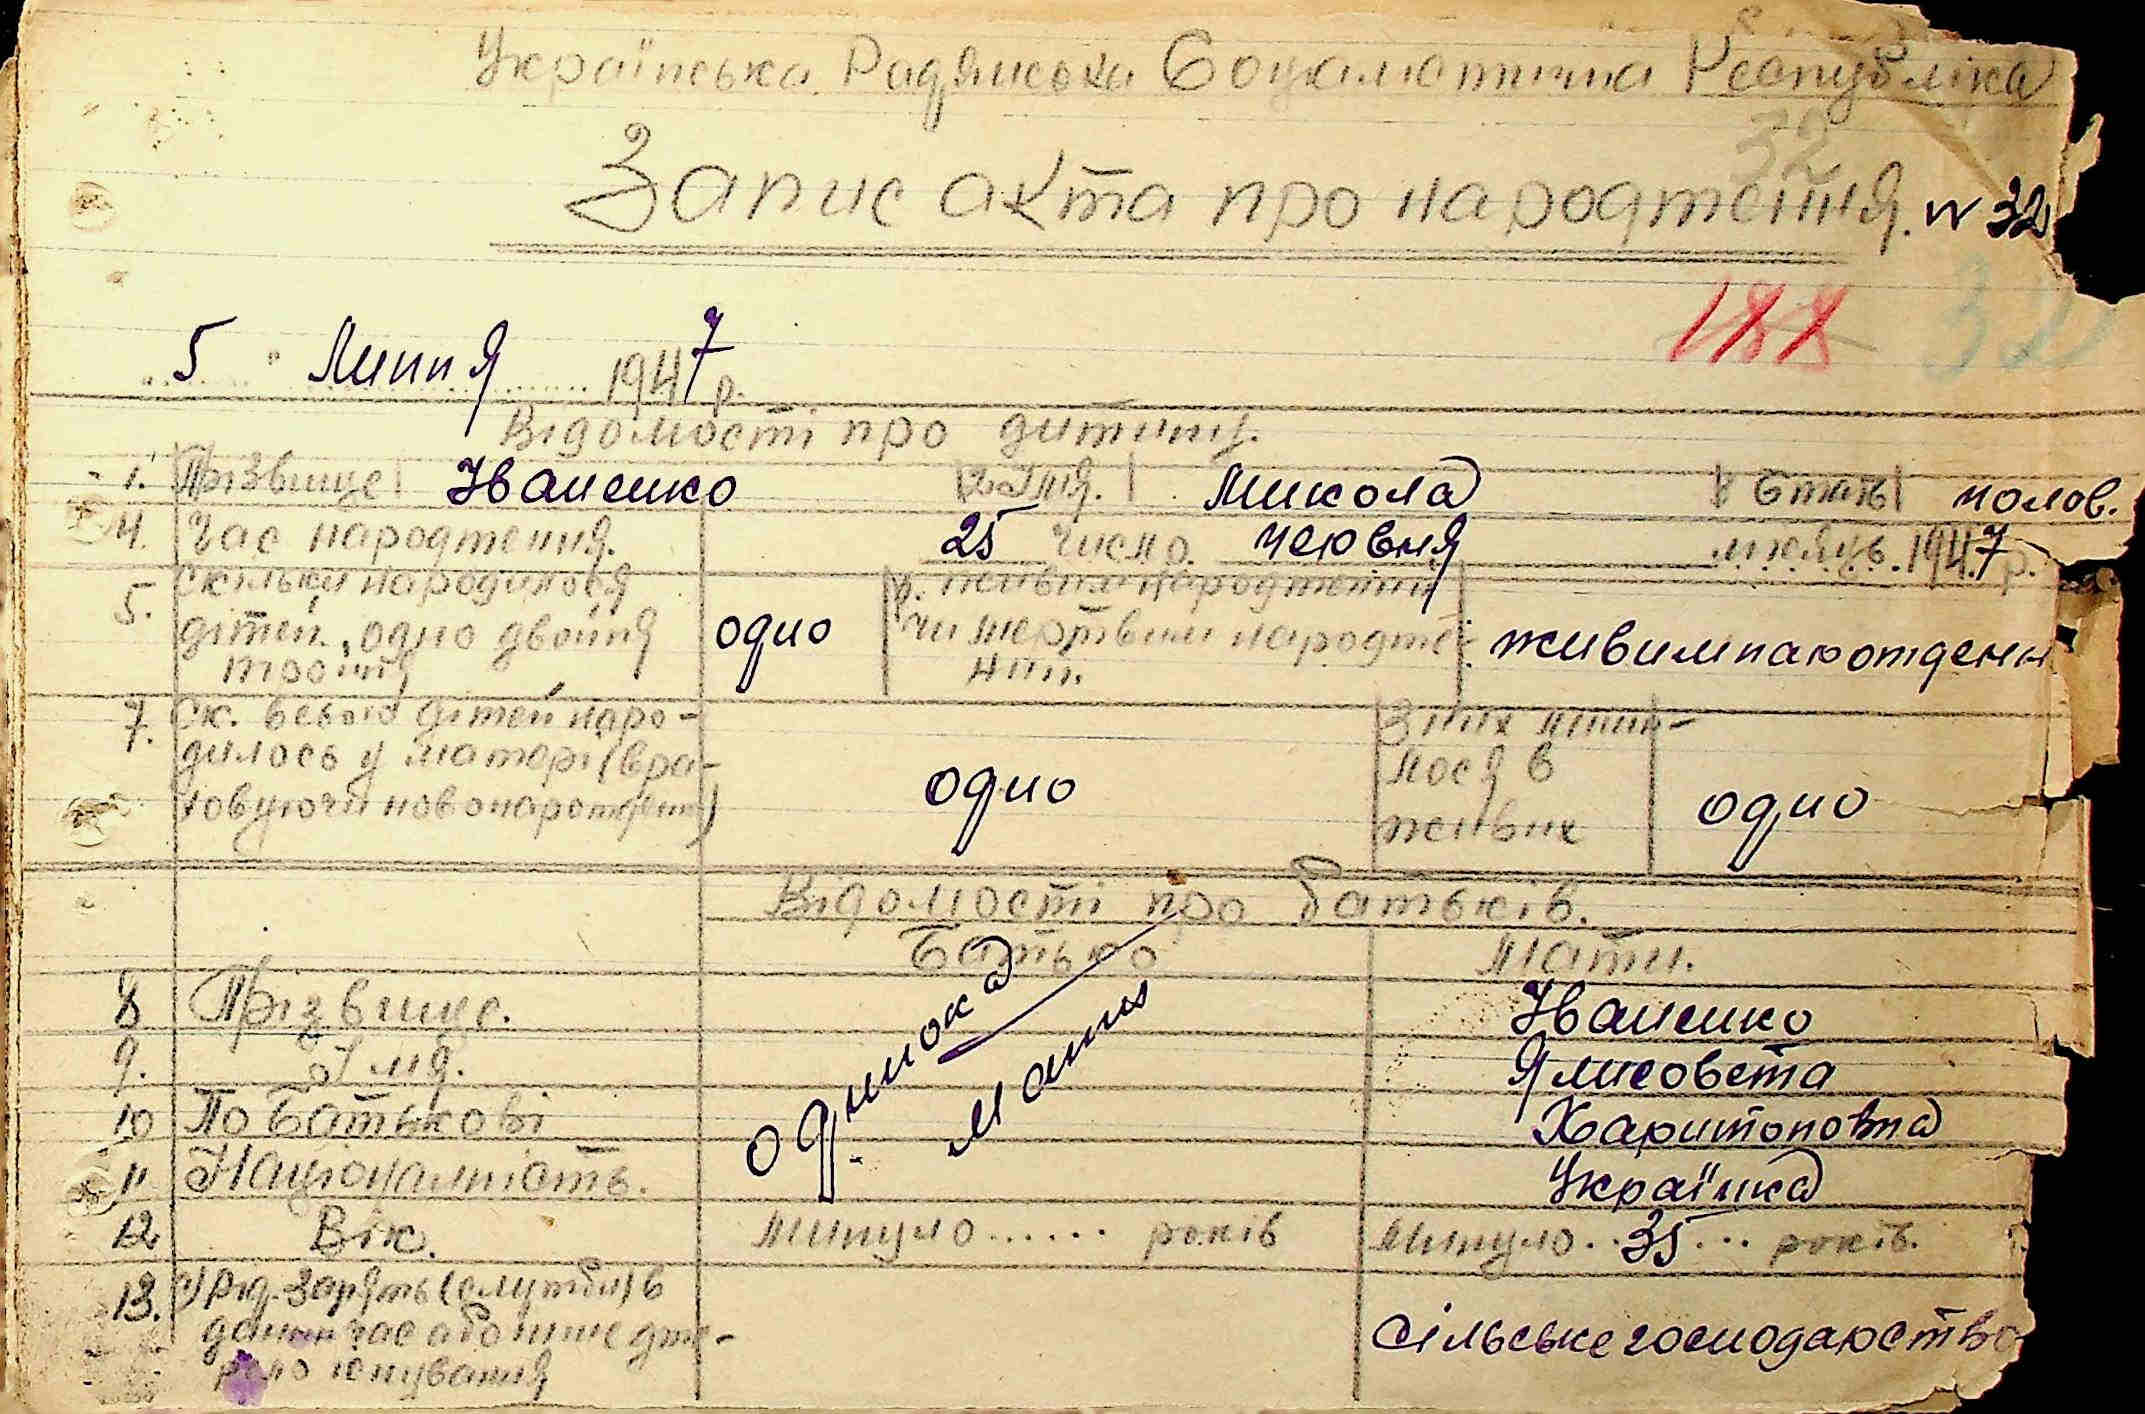 Українська Радянська Соціалістична Республіка
32
Запис акта про народження. N 32
188 32
5 " Липня 1947 р.
Відомості про дитину.
1. Прізвище Іваненко 2. Імя. Микола 3 Стать полов.
4. Час народження. 25 число червня місяць 1947 р.
5. Скільки народилося дітей. одно двойня тройня
одно
6. живим народжений чи мертвим народжений.
живимнарожден
7. Ск. всього дітей народилось у матері (враховуючи новонароджен)
одно
З них лишилося в живих
одно
Відомості про батьків.
Батько Мати.
8 Прізвище. Іваненко
9. Імя. Ялисовета
10 По Батькові Харитоновна
11 Національність. Українка
одинока
мати
12 Вік. Минуло ...... років Минуло .. 35 ... років.
13. а) Рід. занять (служби) в
даний час або інше дже-
рело існування
сільське господарство